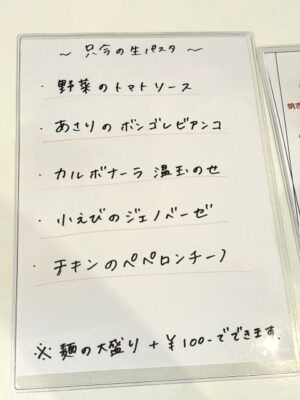 ～ 只今の生パスタ ～
・野菜のトマトソース
・あさりのボンゴレビアンコ
・カルボナーラ 温玉のせ
・小えびのジェノベーゼ
・チキンのペペロンチーノ
※ 麺の大盛り + ¥100-でできます。
焼き